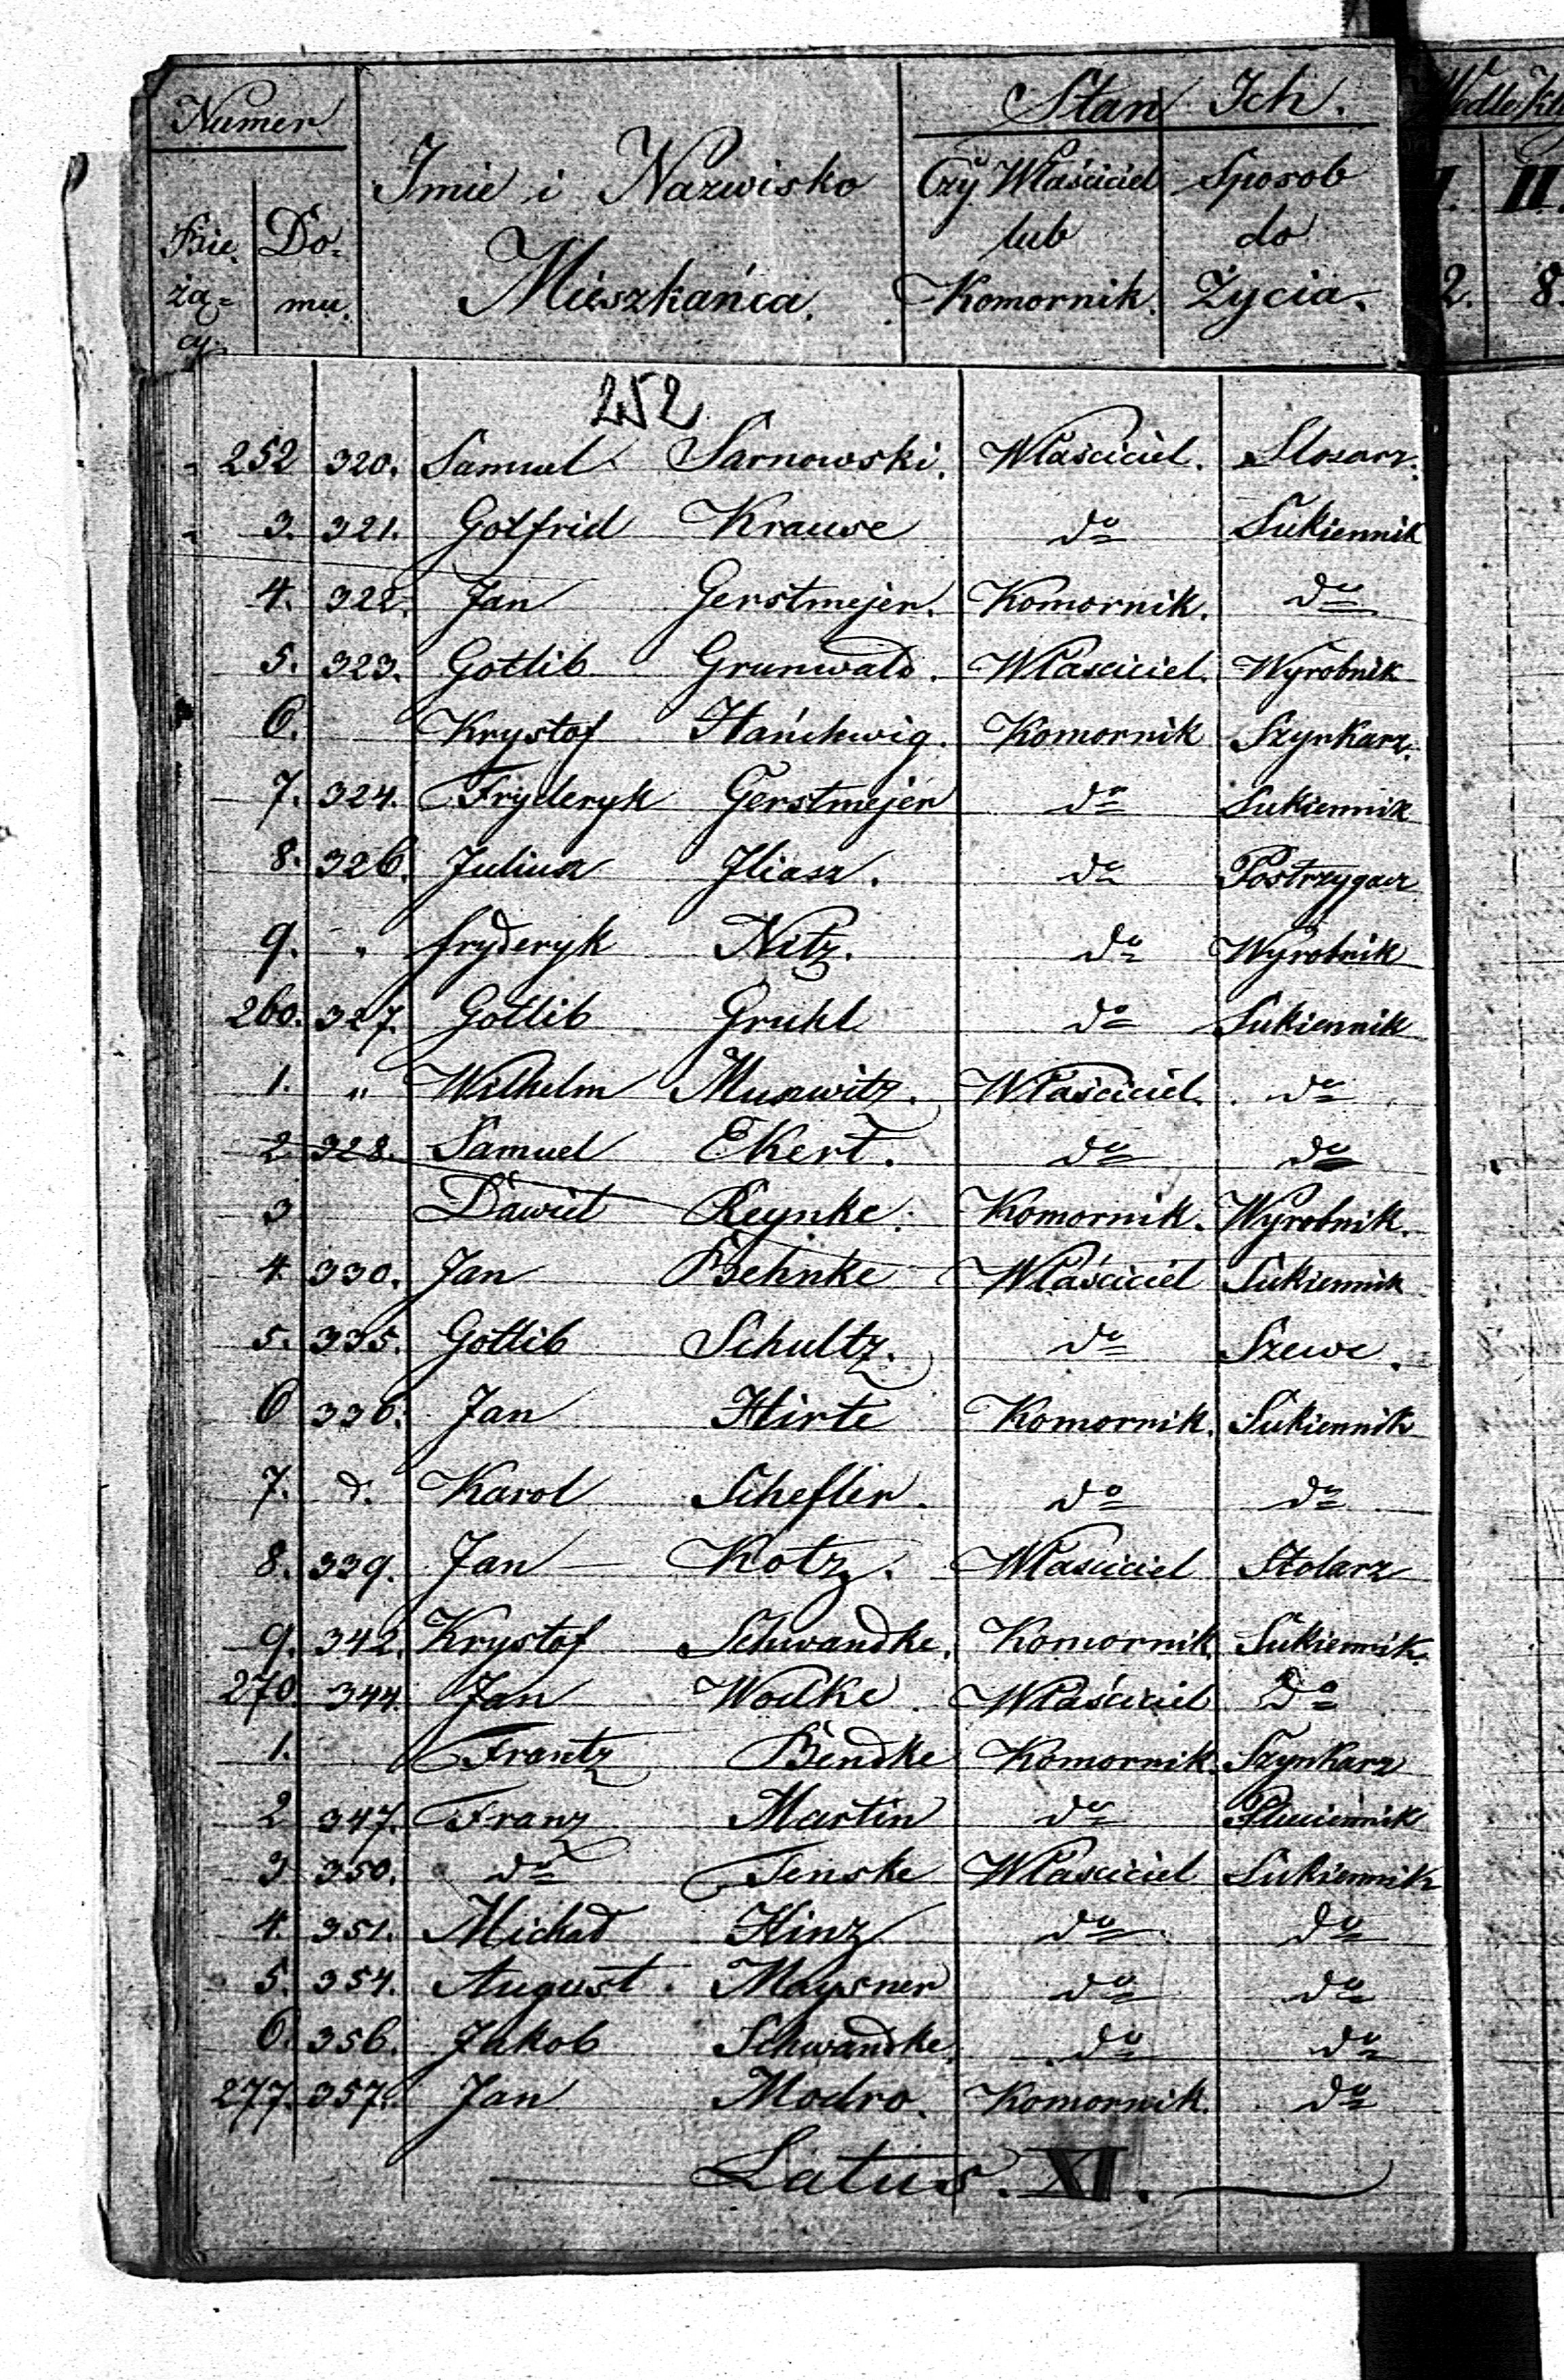 Numer Stan Ich.
Imie i Nazwisko Mieszkańca.
Czy Właściciel lub Komornik.
Sposob do Życia.
Bie-
żą-
cy.
Do-
mu.
I. II.
2. 8.
252
252 320. Samuel Sarnowski. Właściciel. Slosarz.
3. 321. Gotfrid Krause do Sukiennik
4. 322. Jan Gerstmejer. Komornik. do
5. 323. Gotlib Grunwald. Właściciel. Wyrobnik
6. Krystof Komornik Szynkarz.
7. 324. Fryderyk Gerstmejer do Sukiennik
8. 326. Iliasz. do Postrzygacz
9. " fryderyk Nitz. do Wyrobnik
260. 327. Gotlib Gruhl do Sukiennik
1. " Wilhelm Właściciel. do
2 328. Samuel Ekert. do do
3 Dawid Reynke. Komornik. Wyrobnik.
4. 330. Jan Behnke Właściciel Sukiennik
5. 335. Gotlib Schultz. do Szewc.
6 336. Jan Hirte Komornik. Sukiennik
7. d. Karol Schefler. do do
8. 339. Jan Kotz. Właściciel Stolarz
9. 342. Krystof Schwandke. Komornik. Sukiennik.
270. 344. Jan Wodke. Właściciel Do
1. Frantz Bendke Komornik. Szynkarz
2 347. Franz Martin do
3 350. do Tenske Właściciel Sukiennik
4. 351. Michał Hinz do do
5. 354. August Maysner do do
6. 356. Jakob Schwandke. do do
277. 357. Jan Modro. Komornik. do
Latus. XI.